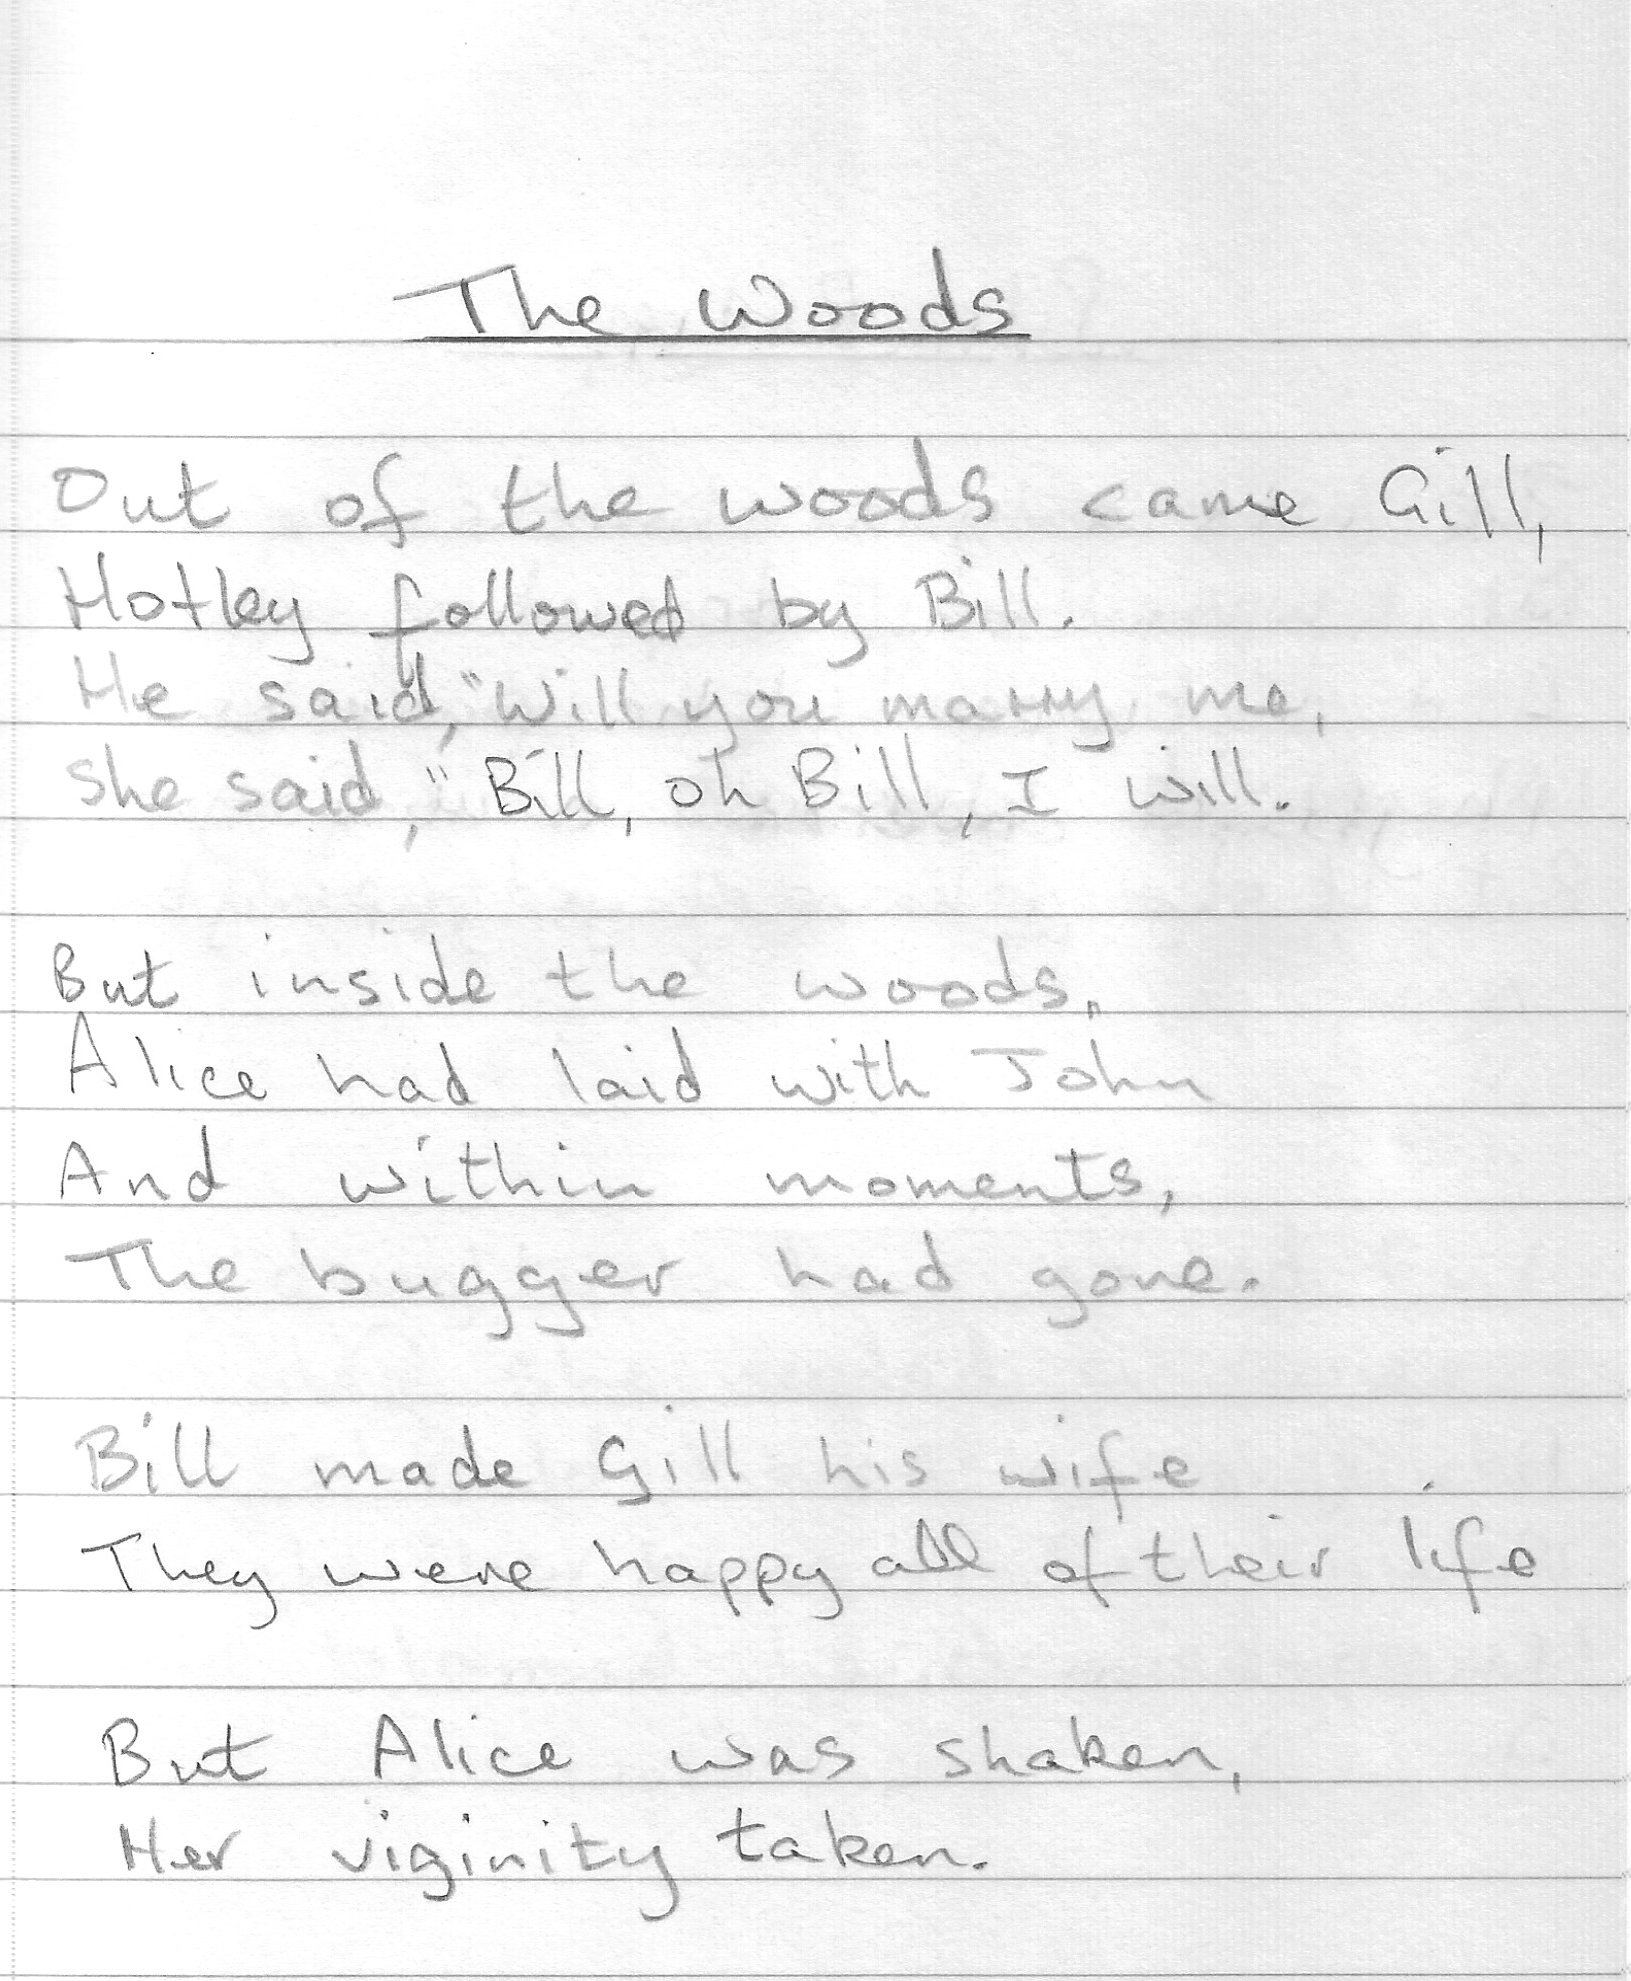 The Woods
Out of the woods came Gill,
Hotley followed by Bill.
He said, "Will you marry me,
She said, "Bill, oh Bill, I will.
But inside the woods,
Alice had laid with John
And within moments,
The bugger had gone.
Bill made Gill his wife
They were happy all of their life
But Alice was shaken,
Her viginity taken.